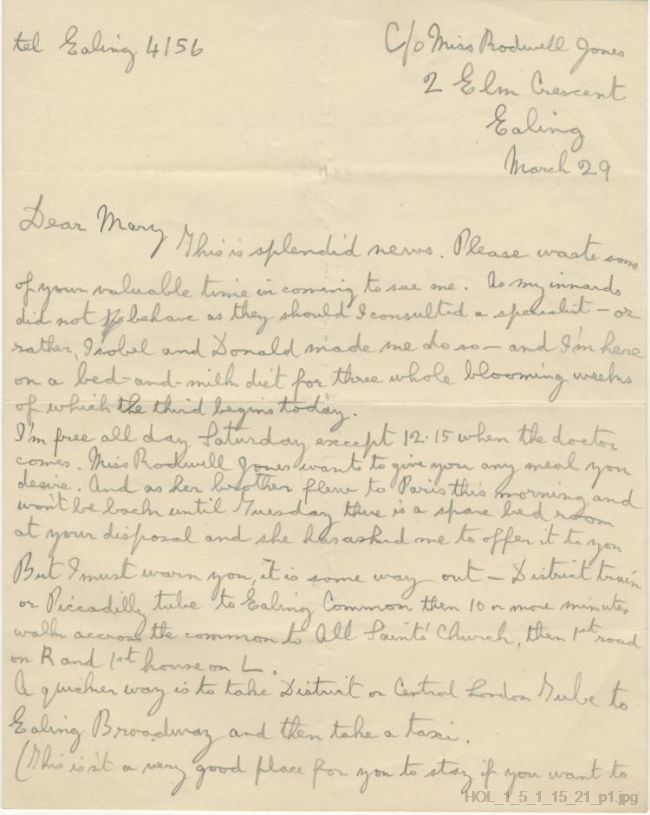 tel Ealing 4156
C/o Miss Rodwell Jones
2 Elm Crescent
Ealing
March 29
Dear Mary
This is splendid news. Please waste some
of your valuable time in coming to see me. As my innards
did not behave as they should I consulted a specialist – or
rather, Isobel and Donald made me do so – and I'm here
on a bed-and-milk diet for three whole blooming weeks
of which the third begins today.
I'm free all day Saturday except 12.15 when the doctor
comes. Miss Rodwell Jones wants to give you any meal you
desire. And as her brother flew to Paris this morning and
won't be back until Tuesday there is a spare bed room
at your disposal and she has asked me to offer it to you
But I must warn you, it is some way out – District train
or Piccadilly tube to Ealing Common then 10 or more minutes
walk accross the common to All Saints' Church, then 1st road
on R and 1st house on L.
A quicker way is to take District or Central London Tube to
Ealing Broadway and then take a taxi.
(This isn't a very good place for you to stay if you want to
HOL_1_5_1_15_21_p1.jpg